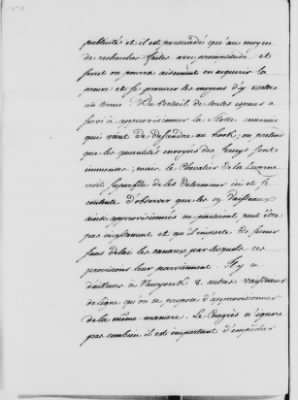 publicités et il est persuadé qu'au moyen
de recherches faites avec promptitude et
secret on pourra aisement en acquerir la
preuve et se procurer les moyens d'y mettre
un terme. Un Betail de toutes especes a
servi à approvisionner la flotte ennemie
qui vient de descendre au North; on pretend
que les quantités envoyées des Jerseys sont
immenses; mais le Chevalier de la Luzerne
croit superflu de les determiner ici et se
contente d'observer que les 19 Vaisseaux
ainsi approvisionnés ne partiront peut être
pas incessamment et qu'il importe de fermer
sans delai les canaux par lesquels ces
provisions leur parviennent. Il y a
d'ailleurs à Newyorck 8. autres vaisseaux
de ligne qu'on se propose d'approvisionner
de la même maniere. Le Congrès n'ignore
pas combien il est important d'empêcher